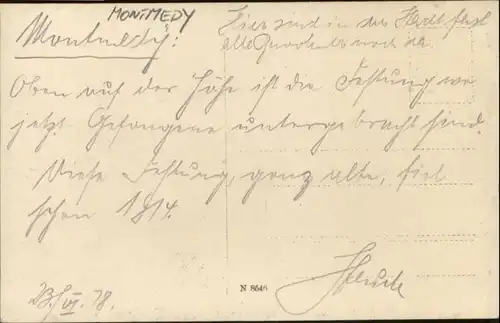 MONTMEDY
Montmedy:
Hier sind in der Stadt fast
alle Quartiere noch da.
Oben auf der Höhe ist die Festung wo
jetzt Gefangene untergebracht sind.
Diese Festung, ganz alte, fiel
schon 1914.
23./VI. 18.
N 8646